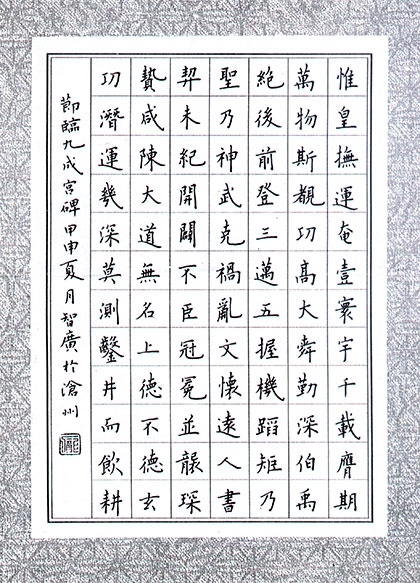 惟皇撫運奄壹寰宇千載膺期
萬物斯覩功高大舜勤深伯禹
絕後前登三邁五握機蹈矩乃
聖乃神武克禍亂文懷遠人書
契未紀開闢不臣冠冕並襲琛
贄咸陳大道無名上德不德玄
功潛運幾深莫測鑿井而飲耕
節臨九成宮碑甲申夏月智廣於滄州